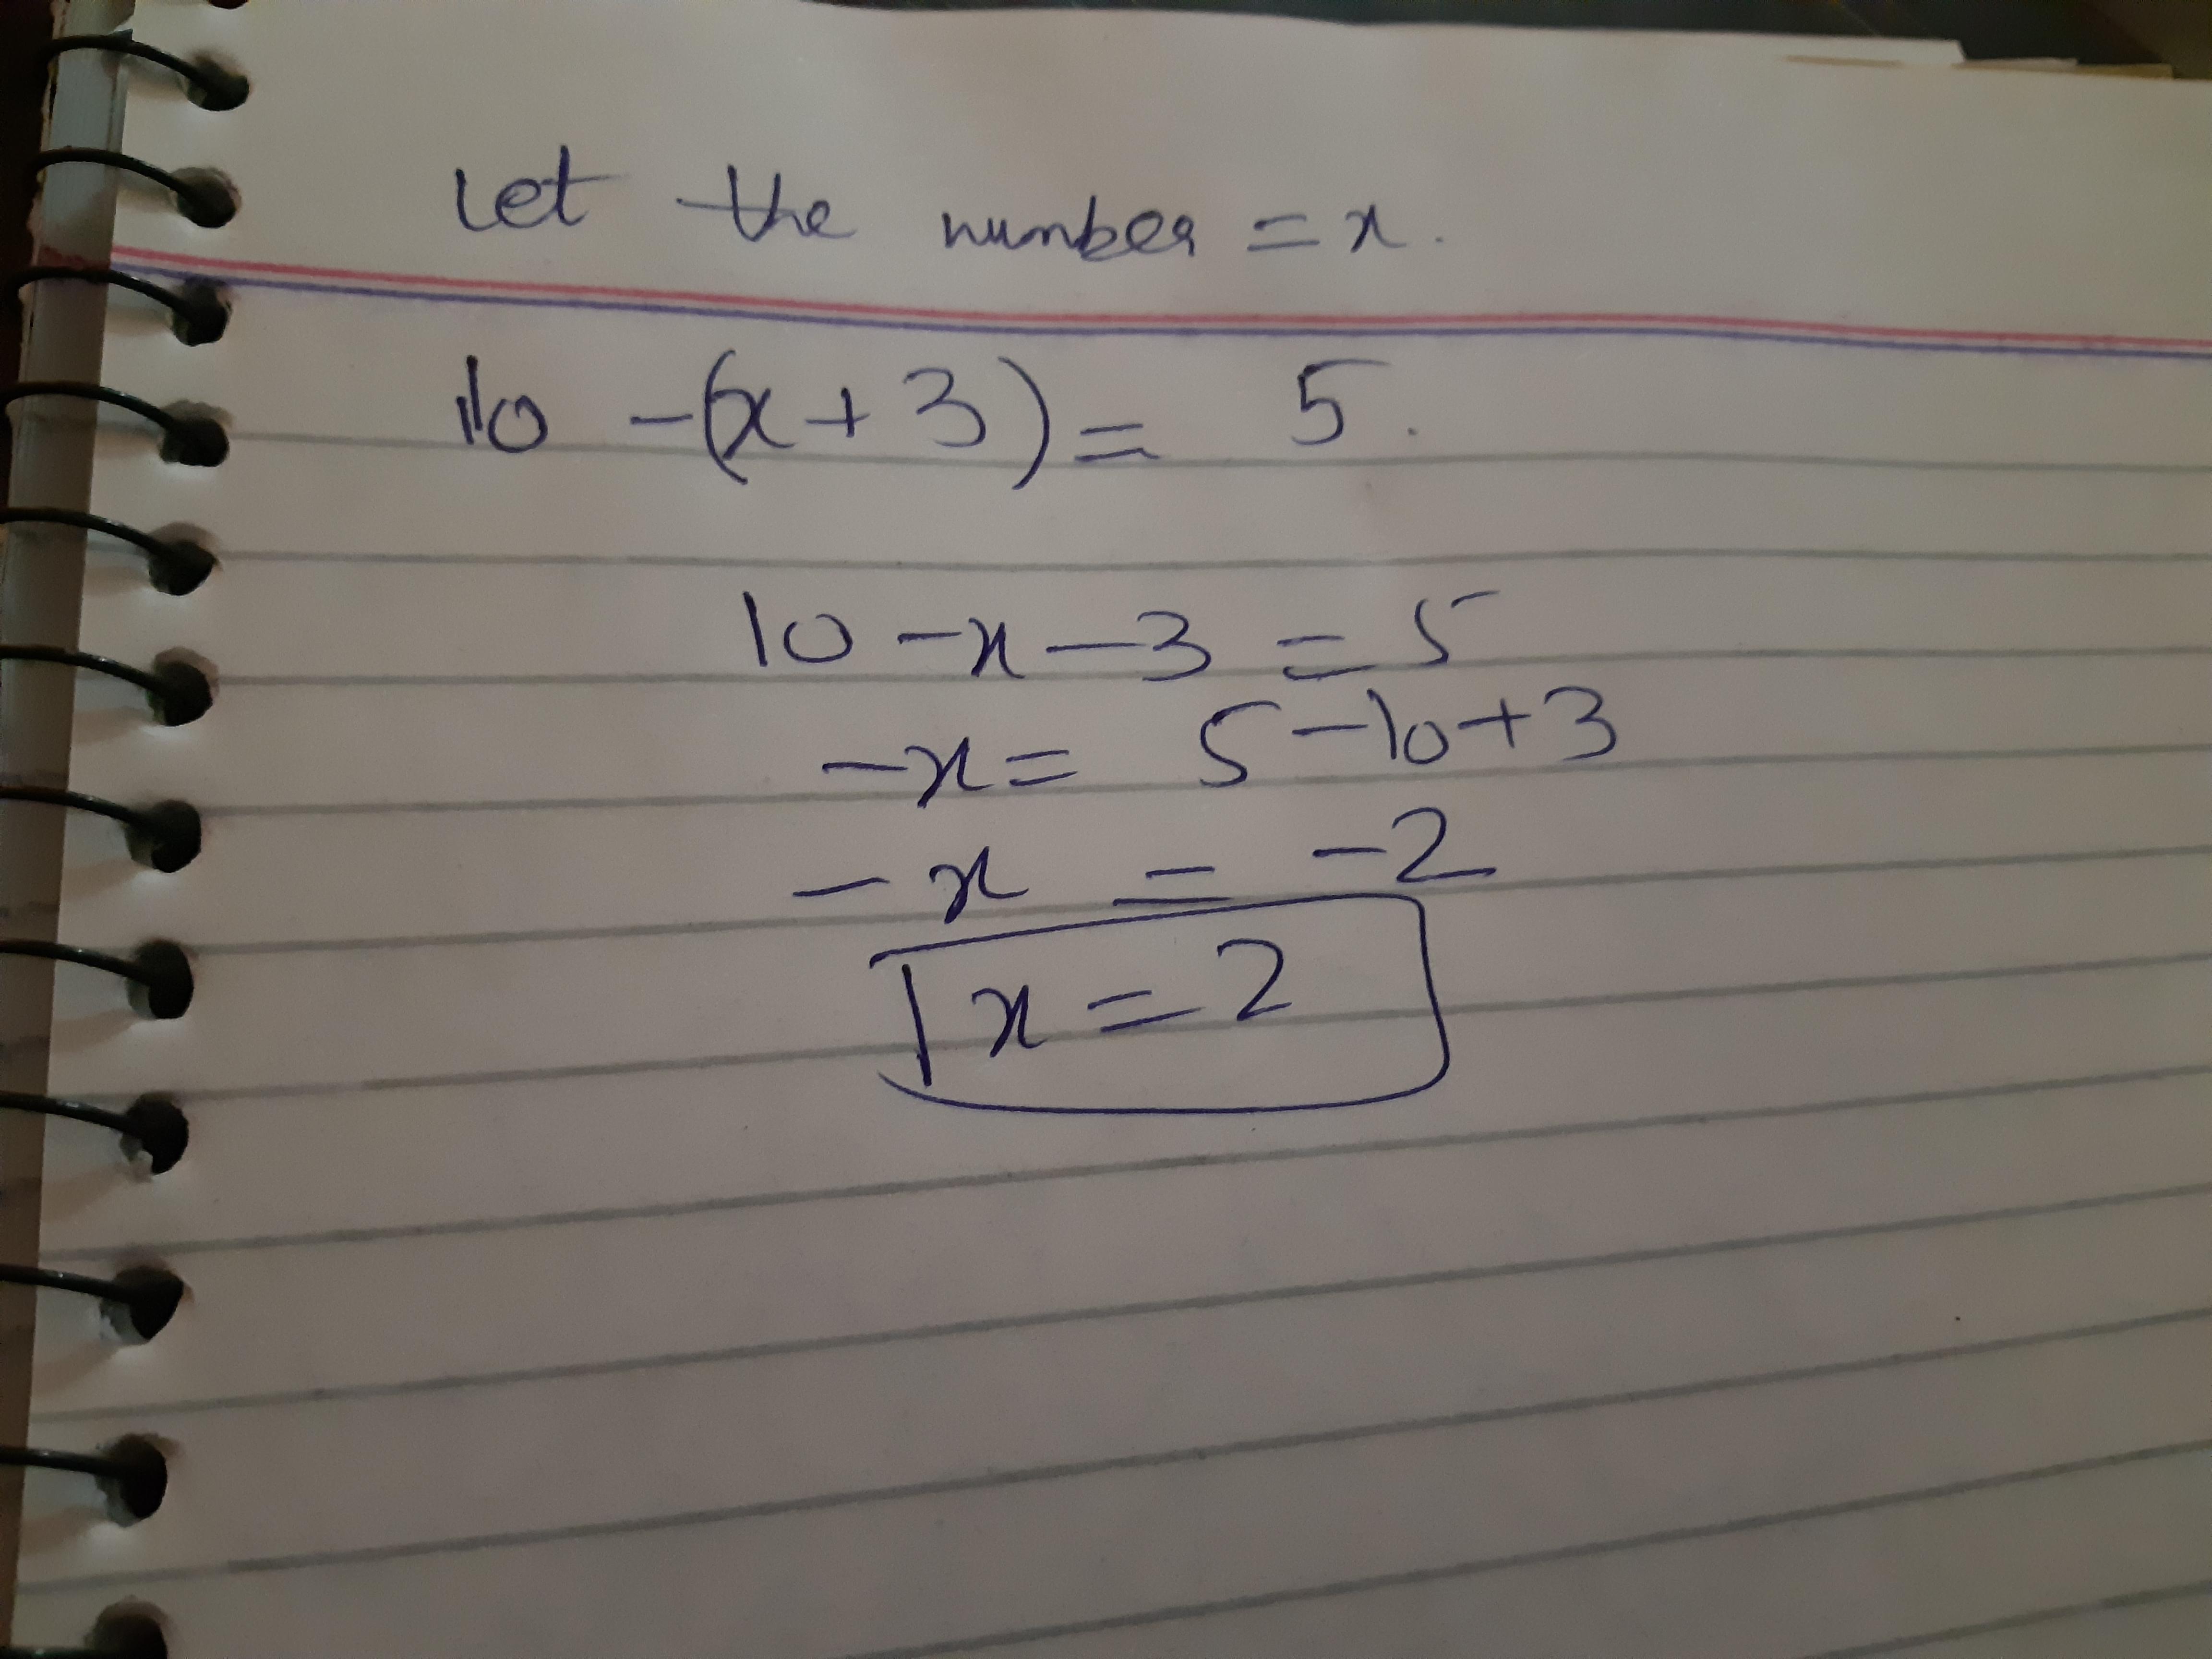 Let the number = x.
10 - (x + 3) = 5.
10 - x - 3 = 5
- x = 5 - 10 + 3
- x = - 2
x = 2